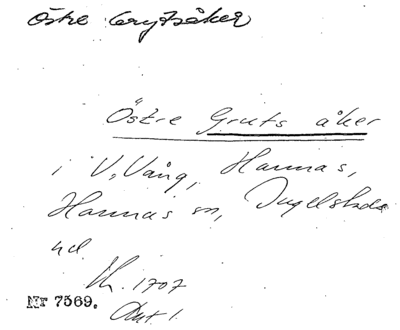 Östre Grytsåker
Östre Gruts åker
i V. Vång, Hannas,
Hannas sn, Ingelstads
hd
Kh. 1707
Nr 7569. Akt 1.